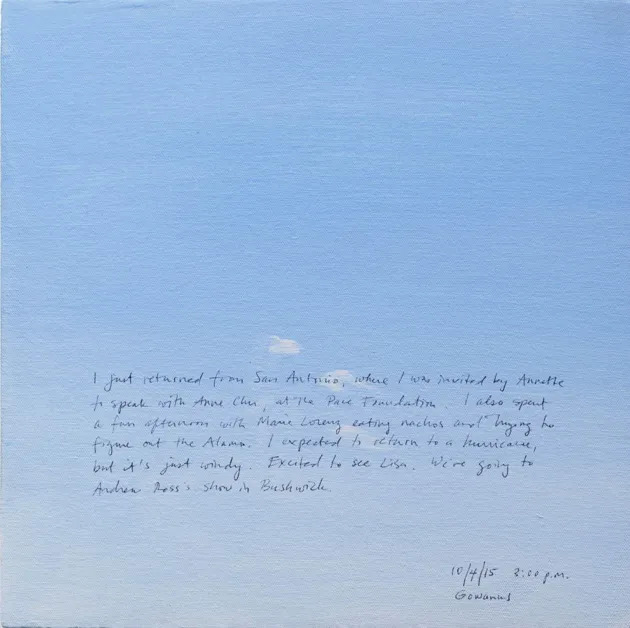 I just returned from San Antonio, where I was invited by Annette
to speak with Anne Chu, at the Pace Foundation. I also spent
a fun afternoon with Marie Lorenz eating nachos and trying to
figure out the Alamo. I expected to return to a hurricane,
but it's just windy. Excited to see Lisa. We're going to
Andrew Ross's show in Bushwick.
10/4/15 2:00 p.m.
Gowanus